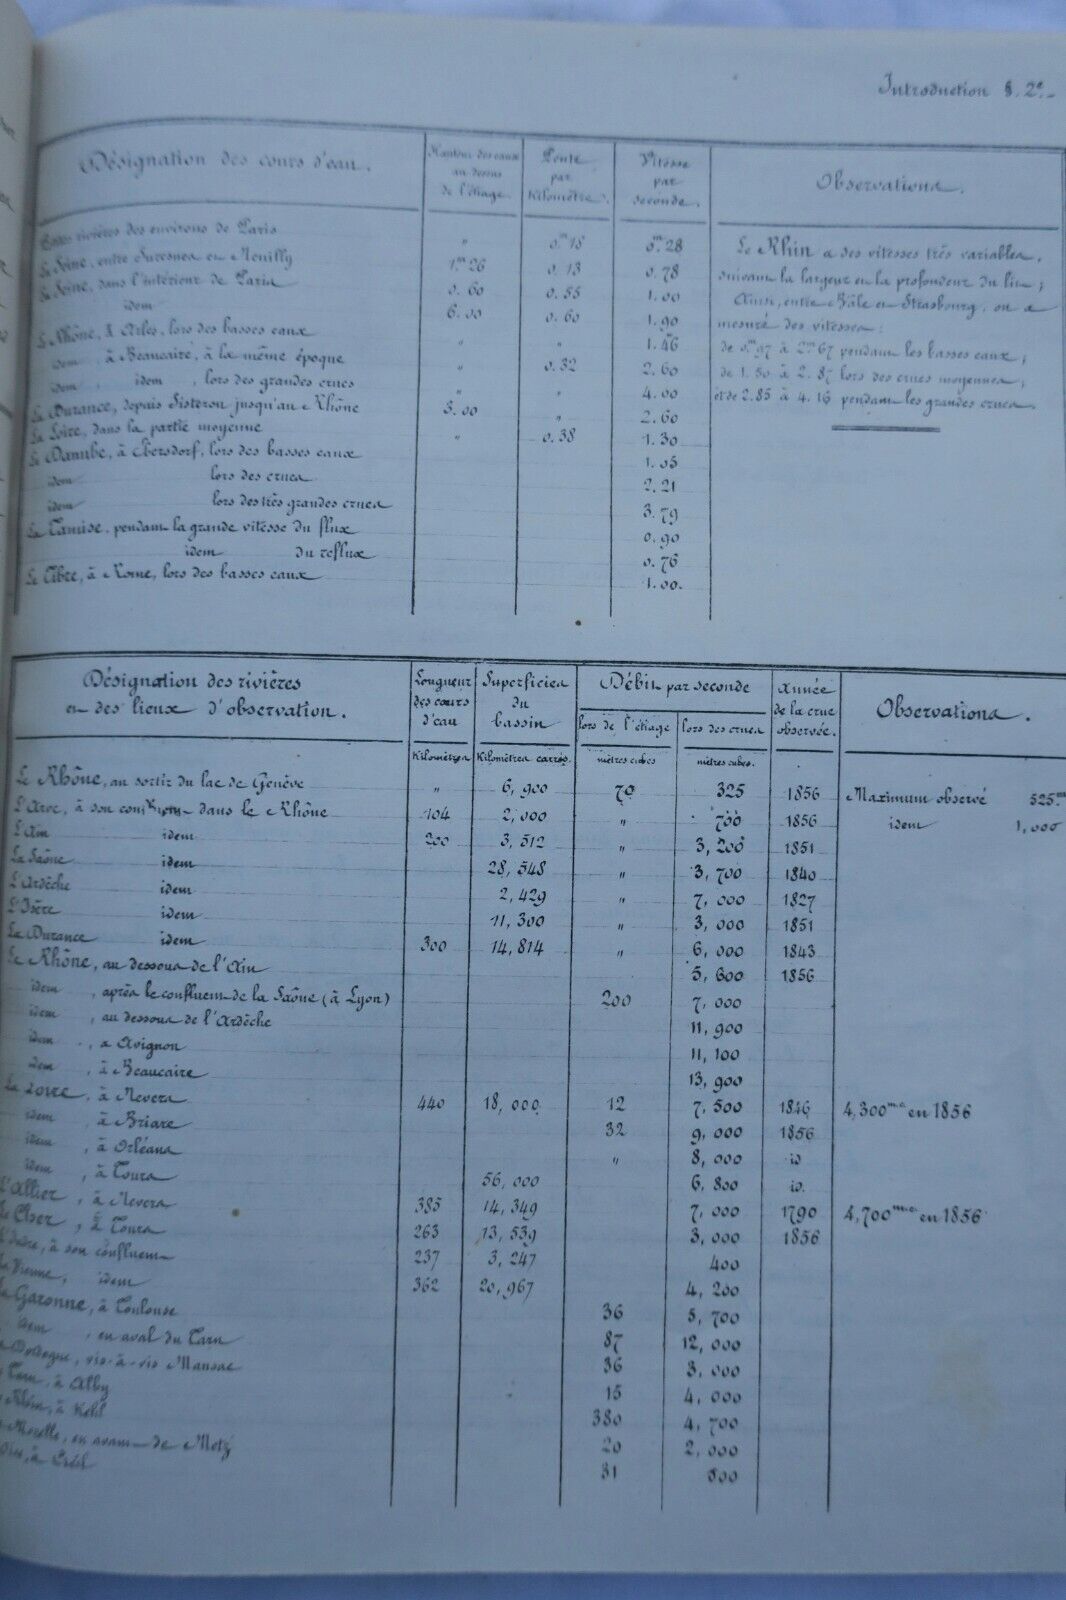 Introduction §. 2e.
Désignation des cours d'eau.
Hauteur des eaux au dessus de l'étiage.
Pente par Kilomètre.
Vitesse par seconde.
Observations.
rivières des environs de Paris " 0.m15 0.m28
La Seine, entre Suresnes et Neuilly 1.m26 0.13 0.78
La Seine, dans l'intérieur de Paris 0.60 0.55 1.00
idem 6.00 0.60 1.90
Le Rhône, à Arles, lors des basses eaux " " 1.46
idem, à Beaucaire, à la même époque " 0.32 2.60
idem, idem, lors des grandes crues " 4.00
La Durance, depuis Sisteron jusqu'au Rhône 3.00 " 2.60
La Loire, dans la partie moyenne " 0.38 1.30
Le Danube, à Ebersdorf, lors des basses eaux 1.05
idem lors des crues 2.21
idem lors des très grandes crues 3.79
La Tamise, pendant la grande vitesse du flux 0.90
idem du reflux 0.76
Le Tibre, à Rome, lors des basses eaux 1.00.
Le Rhin a des vitesses très variables,
suivant la largeur et la profondeur du lit;
Ainsi, entre Bâle et Strasbourg, on a
mesuré des vitesses:
de 0.m97 à 2.m67 pendant les basses eaux;
de 1.50 à 2.87 lors des crues moyennes;
et de 2.85 à 4.16 pendant les grandes crues.
Désignation des rivières et des lieux d'observation.
Longueur des cours d'eau
Superficies du bassin
Débit par seconde
Année de la crue observée.
Observations.
lors de l'étiage lors des crues
Kilomètres Kilomètres carrés. mètres cubes mètres cubes.
Le Rhône, au sortir du lac de Genève " 6,900 70 325 1856 Maximum observé 525.m
L'Arve, à son confluent dans le Rhône 104 2,000 " 700 1856 idem 1,000
L'Ain idem 200 3,512 " 3,200 1851
La Saône idem 28,548 " 3,700 1840
L'Ardèche idem 2,429 " 7,000 1827
L'Isère idem 11,300 " 3,000 1851
La Durance idem 300 14,814 " 6,000 1843
Le Rhône, au dessous de l'Ain 5,600 1856
idem, après le confluent de la Saône (à Lyon) 200 7,000
idem, au dessous de l'Ardèche 11,900
idem, à Avignon 11,100
idem, à Beaucaire 13,900
La Loire, à Nevers 440 18,000 12 7,500 1846 4,300m.c. en 1856
idem, à Briare 32 9,000 1856
idem, à Orléans " 8,000 id
idem, à Tours 56,000 6,800 id.
L'Allier, à Nevers 385 14,349 7,000 1790 4,700m.c. en 1856
Le Cher, à Tours 263 13,539 3,000 1856
L'Indre, à son confluent 237 3,247 400
La Vienne, idem 362 20,967 4,200
La Garonne, à Toulouse 36 5,700
idem, en aval du Tarn 87 12,000
Dordogne, vis-à-vis Mansac 36 3,000
Tarn, à Alby 15 4,000
Rhin, à Kehl 380 4,700
Moselle, en avant de Metz 20 2,000
Oise, à Creil 31 500